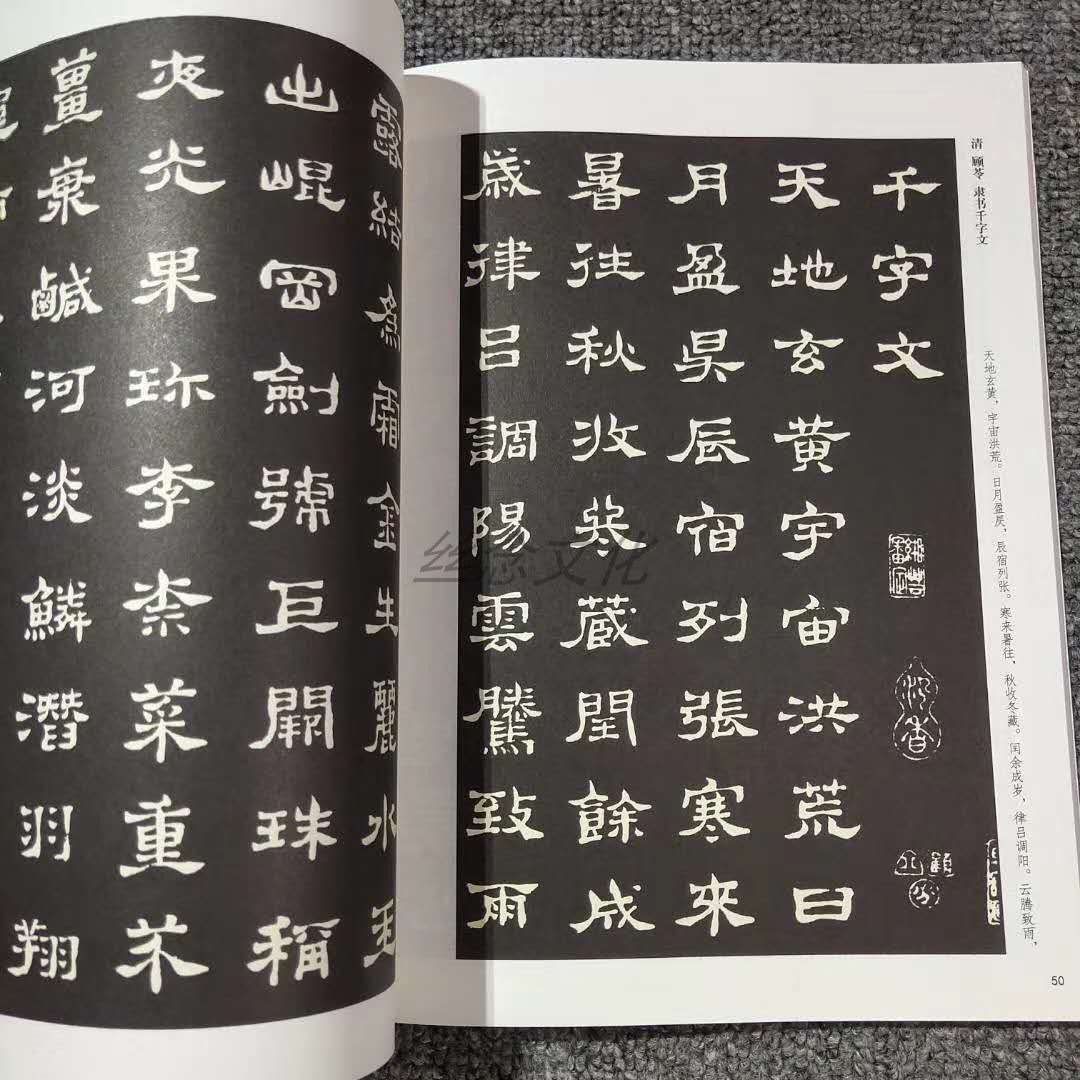 清 顾苓 隶书千字文
天地玄黄，宇宙洪荒。日月盈昃，辰宿列张。寒来暑往，秋收冬藏。闰余成岁，律吕调阳。云腾致雨，
千字文
天地玄黄宇宙洪荒日
月盈昃辰宿列張寒來
暑往秋收冬藏閏餘成
歲律呂調陽雲騰致雨
50
露結為霜金生麗水玉
出崐岡劍號巨闕珠稱
夜光果珍李柰菜重芥
薑海鹹河淡鱗潛羽翔
丝念文化